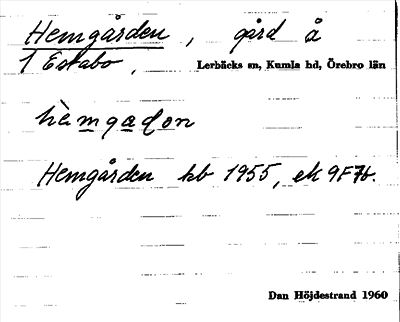 Hemgården, gård å
1 Estabo, Lerbäcks sn, Kumla hd, Örebro län
hèmgadon
Hemgården kb 1955, ek 9F7b.
Dan Höjdestrand 1960